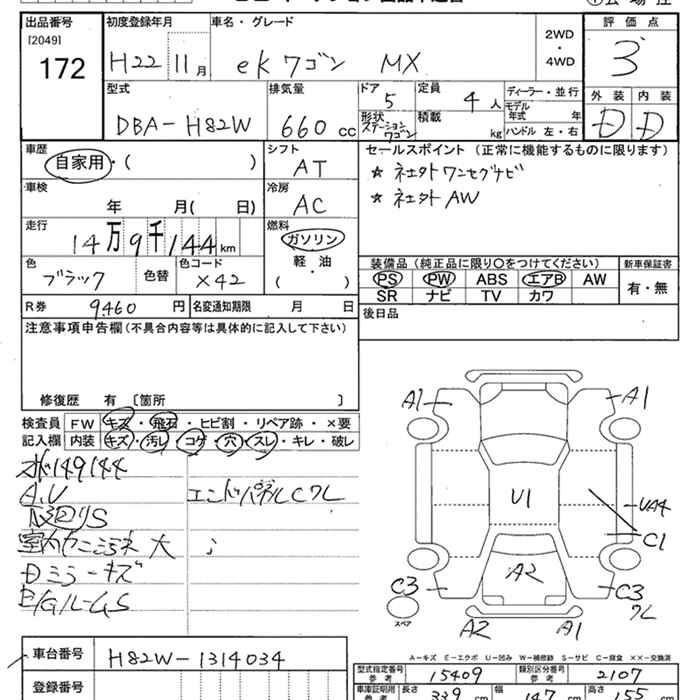 出品番号
[2049]
172
初度登録年月
H22 11月
車名・グレード
ekワゴン MX
2WD
・
4WD
評価点
3
型式
DBA-H82W
排気量
660 cc
ドア
5
形状
ステーションワゴン
定員
4人
積載
kg
ディーラー・並行
モデル年式 年
ハンドル 左・右
外装 内装
D D
車歴
自家用・( )
シフト
AT
セールスポイント (正常に機能するものに限ります)
☆ ネエタトワンセグナビ
☆ ネエタト AW
車検
年 月( 日)
冷房
AC
走行
14万9千144km
燃料
ガソリン
軽・油
( )
色
ブラック
色替
色コード
X42
装備品 (純正品に限り○をつけてください)
PS PW ABS エアB AW
SR ナビ TV カワ
新車保証書
有・無
R券 9460円
名変通知期限 月 日
後日品
注意事項申告欄(不具合内容等は具体的に記入して下さい)
修復歴 有 〔箇所 〕
検査員記入欄
FW キズ・飛石・ヒビ割・リペア跡・×要
内装 キズ・汚レ・コゲ・穴・スレ・キレ・破レ
149144
A.U エンドパネルCクレ
S
大
Dミラーキズ
A1 A1
U1
UA4
C1
A2
C3 C3
クレ
スペア
A2 A1
A-キズ E-エクボ U-凹み W-補修跡 S-サビ C-腐食 ××-交換済
車台番号 H82W-1314034
登録番号
型式指定番号 参考 15409
類別区分番号 参考 2107
車庫証明用 参考 長さ 339 cm 幅 147 cm 高さ 155 cm